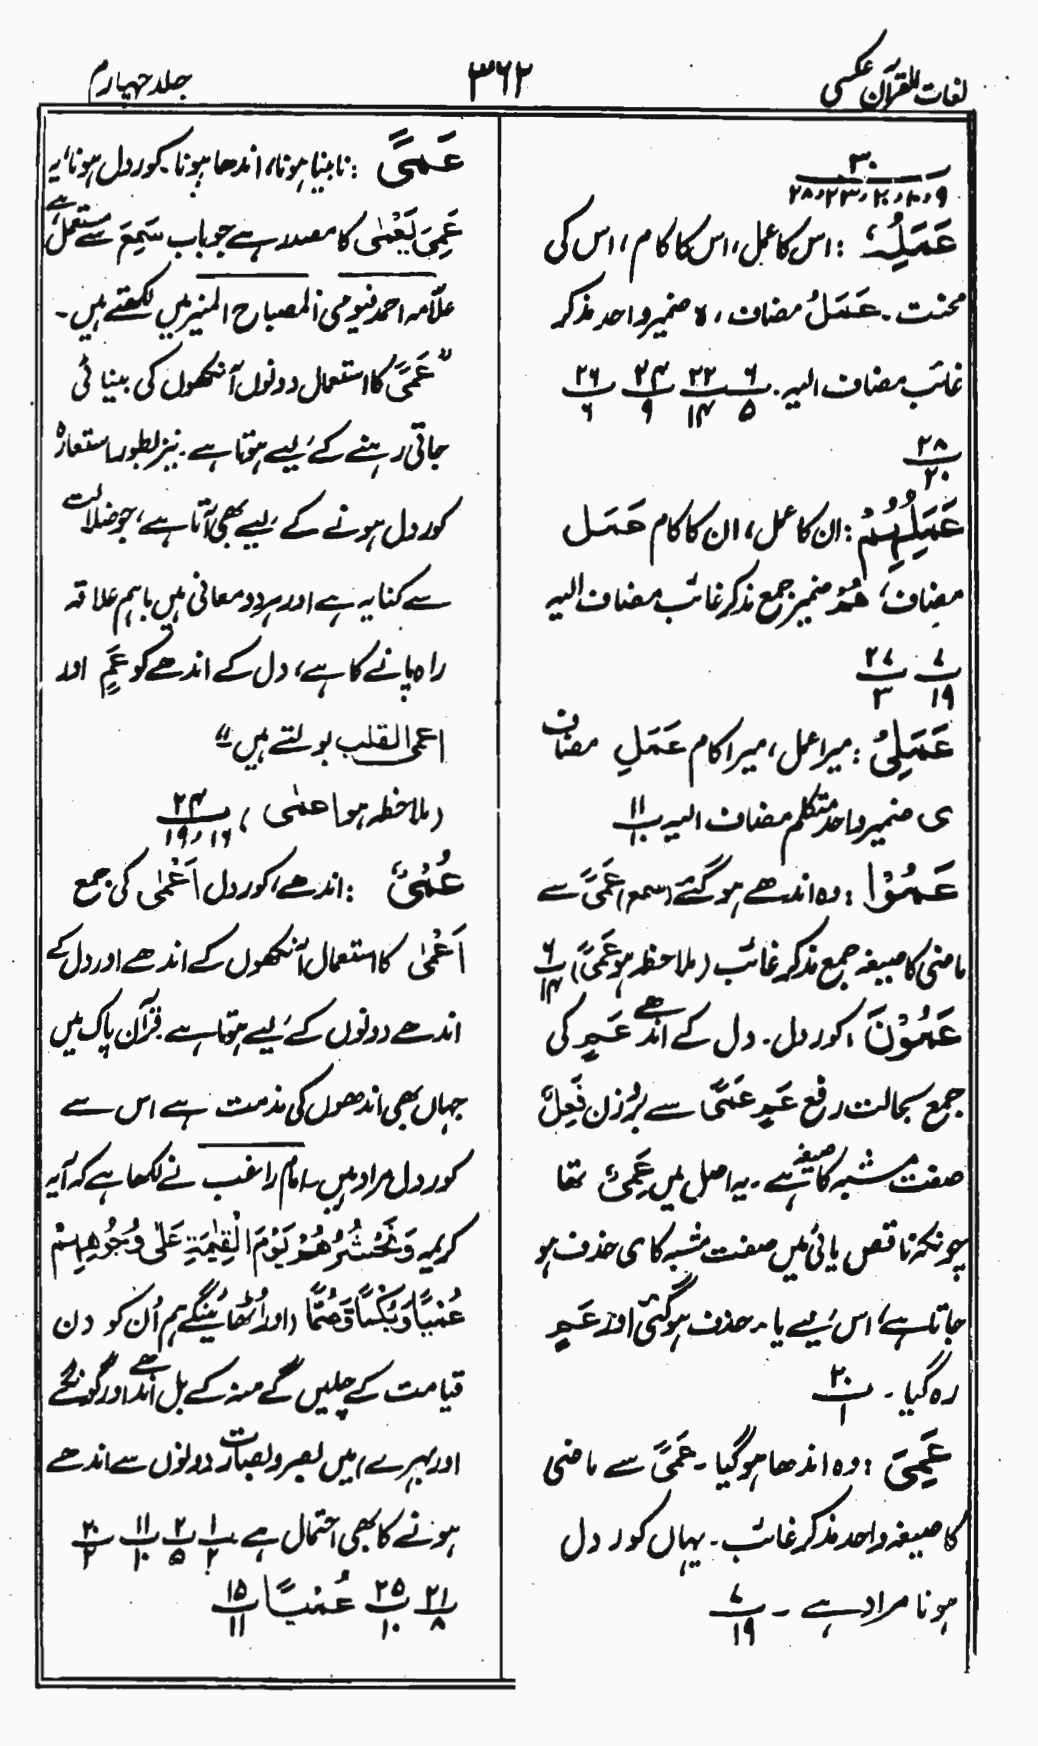 لغات القرآن عکسی
۳۶۲
جلد چہارم
۳۰
۹، ۱۰، ۲۰، ۲۳، ۲۸
عَمَلِہٖ : اس کا عمل، اس کا کام، اس کی
محنت۔ عَمَلُ مضاف، ہ ضمیر واحد مذکر
غائب مضاف الیہ۔ ۶/۵ ۲۲/۱۴ ۲۴/۹ ۲۶/۶
۲۸/۲۰
عَمَلِہِمْ : ان کا عمل، ان کا کام عَمَل
مضاف، ھُمْ ضمیر جمع مذکر غائب مضاف الیہ
۷/۱۹ ۲۷/۳
عَمَلِیْ : میرا عمل، میرا کام عَمَلِ مضاف
ی ضمیر واحد متکلم مضاف الیہ ۱۱/۱۰
عَمُوْا : وہ اندھے ہوگئے (سمع) عَمًی سے
ماضی کا صیغہ جمع مذکر غائب (ملاحظہ ہو عَمًی) ۶/۱۴
عَمُوْنَ : کور دل۔ دل کے اندھے عَمٍ کی
جمع بحالت رفع عَمٍ عَمًی سے بروزن فَعِلٌ
صفت مشبہ کا صیغہ ہے۔ یہ اصل میں عَمِیٌ تھا
چونکہ ناقص یائی میں صفت مشبہ کا ی حذف ہو
جاتا ہے، اس لیے یاء حذف ہوگئی اور عَمٍ
رہ گیا۔ ۲۰/۱
عَمِیَ : وہ اندھا ہوگیا۔ عَمًی سے ماضی
کا صیغہ واحد مذکر غائب۔ یہاں کور دل
ہونا مراد ہے۔ ۷/۱۹
عَمًی : نابینا ہونا، اندھا ہونا۔ کور دل ہونا، یہ
عَمِیَ یَعْمٰی کا مصدر ہے جو باب سَمِعَ سے مستعمل ہے
علّامہ احمد فیومی المصباح المنیر میں لکھتے ہیں۔
”عَمًی کا استعمال دونوں آنکھوں کی بینائی
جاتی رہنے کے لیے ہوتا ہے۔ نیز بطور استعارہ
کور دل ہونے کے لیے بھی آتا ہے، جو ضلالت
سے کنایہ ہے اور ہر دو معانی میں باہم علاقہ
راہ پانے کا ہے، دل کے اندھے کو عَمٍ اور
اعمی القلب بولتے ہیں“
(ملاحظہ ہو اعمٰی) ۲۴/۱۶، ۱۹
عُمْیٌ : اندھے، کور دل اَعْمٰی کی جمع
اَعْمٰی کا استعمال آنکھوں کے اندھے اور دل کے
اندھے دونوں کے لیے ہوتا ہے قرآن پاک میں
جہاں بھی اندھوں کی مذمت ہے اس سے
کور دل مراد ہیں۔ امام راغب نے لکھا ہے کہ آیہ
کریمہ وَنَحْشُرُھُمْ یَوْمَ الْقِیٰمَۃِ عَلٰی وُجُوْھِہِمْ
عُمْیًا وَّبُکْمًا وَّصُمًّا (اور اُٹھائینگے ہم اُن کو دن
قیامت کے چلیں گے منہ کے بل اندھے اور گونگے
اور بہرے) میں بصر و بصارت دونوں سے اندھے
ہونے کا بھی احتمال ہے ۱/۲ ۲/۵ ۱۱/۱۰ ۲۰/۲
۲۱/۸ ۲۵/۱۰ عُمْیًا ۱۵/۱۱